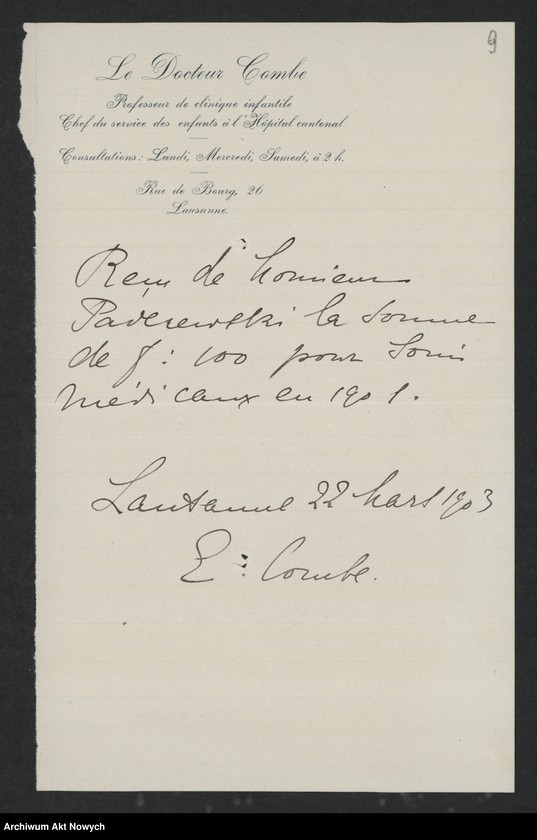 9
Le Docteur Combe
Professeur de clinique infantile
Chef du service des enfants à l'Hôpital cantonal
Consultations: Lundi, Mercredi, Samedi, à 2 h.
Rue de Bourg, 26
Lausanne.
Reçu de Monsieur
Paderewski la somme
de f: 100 pour soins
médicaux en 1901.
Lausanne 22 Mars 1903
E: Combe.
Archiwum Akt Nowych